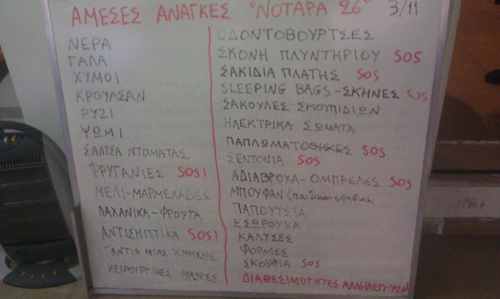 ΑΜΕΣΕΣ ΑΝΑΓΚΕΣ "ΝΟΤΑΡΑ 26" 3/11
ΝΕΡΑ
ΓΑΛΑ
ΧΥΜΟΙ
ΚΡΟΥΑΣΑΝ
ΡΥΖΙ
ΨΩΜΙ
ΣΑΛΤΣΑ ΝΤΟΜΑΤΑΣ
ΦΡΥΓΑΝΙΕΣ SOS!
ΜΕΛΙ-ΜΑΡΜΕΛΑΔΕΣ
ΛΑΧΑΝΙΚΑ-ΦΡΟΥΤΑ
ΑΝΤΙΣΗΠΤΙΚΑ SOS!
ΓΑΝΤΙΑ ΜΙΑΣ ΧΡΗΣΗΣ
ΧΕΙΡΟΥΡΓΙΚΕΣ ΜΑΣΚΕΣ
ΟΔΟΝΤΟΒΟΥΡΤΣΕΣ
ΣΚΟΝΗ ΠΛΥΝΤΗΡΙΟΥ SOS
ΣΑΚΙΔΙΑ ΠΛΑΤΗΣ SOS
SLEEPING BAGS-ΣΚΗΝΕΣ SOS
ΣΑΚΟΥΛΕΣ ΣΚΟΥΠΙΔΙΩΝ
ΗΛΕΚΤΡΙΚΑ ΣΩΜΑΤΑ
ΠΑΠΛΩΜΑΤΟΘΗΚΕΣ SOS
ΣΕΝΤΟΝΙΑ SOS
ΑΔΙΑΒΡΟΧΑ-ΟΜΠΡΕΛΕΣ SOS
ΜΠΟΥΦΑΝ (παιδικά-εφηβικά)
ΠΑΠΟΥΤΣΙΑ
ΕΣΩΡΟΥΧΑ
ΚΑΛΤΣΕΣ
ΦΟΡΜΕΣ
ΣΚΟΥΦΙΑ SOS
ΔΙΑΘΕΣΙΜΟΤΗΤΕΣ ΑΛΛΗΛΕΓ-ΥΩΝ